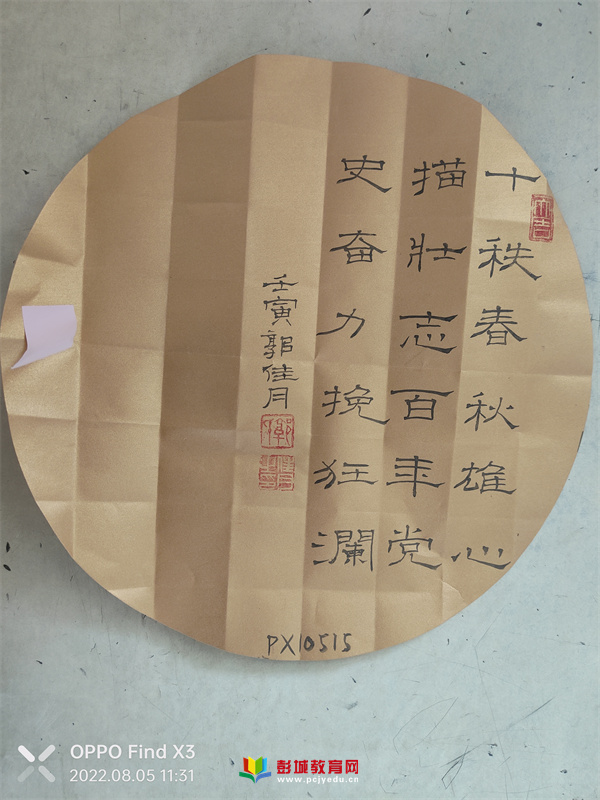 十秩春秋雄心
描壯志百年党
史奋力挽狂澜
壬寅郭佳月
PX10515
OPPO Find X3
2022.08.05 11:31
彭城教育网
www.pcjyedu.cn